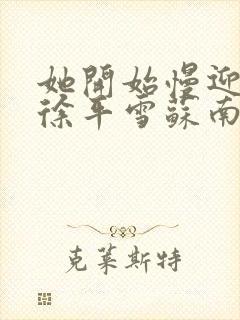 她開始慢迎
徐年雪蘇南
克莱斯特